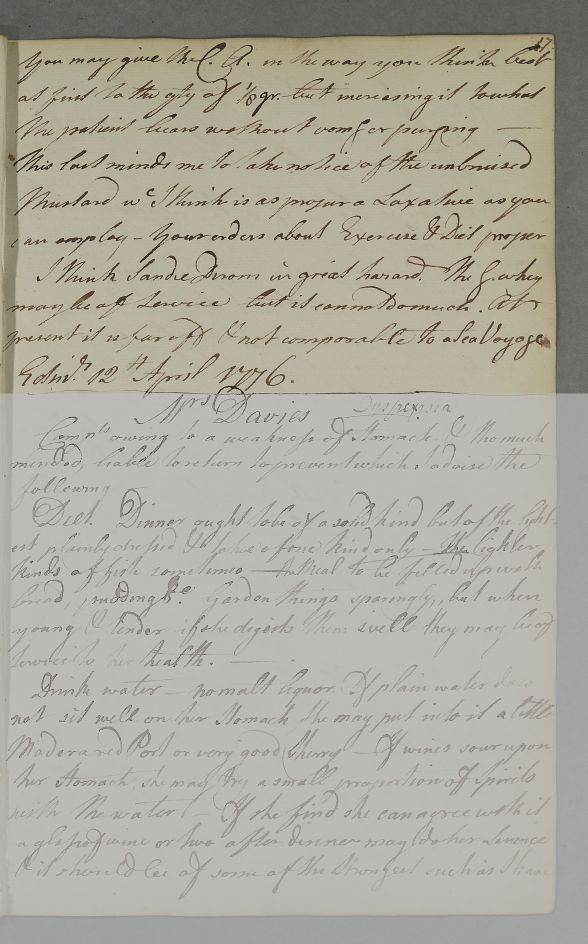 17.
You may give the C. A. in the way you think best
as first to the qty of 1/8 gr. but increasing it to what
the patient bears without vomg or purging —
This last minds me to take notice of the unbruised
Mustard wc I think is as proper a Laxative as you
can employ – Your orders about Exercise & Diet proper
I think Sandie Dirom in great hazard. The G. whey
may be of service but it cannot do much. At
present it is far off & not comparable to a Sea Voyage
Edinr. 12th April 1776.
Mrs Davies Dyspepsia
Compts owing to a weakness of Stomach, & tho much
mended, liable to return to prevent which I advise the
following
Diet. Dinner ought to be of a solid kind but of the light-
est plainly dressed & to take of one kind only – The lighter
kinds of fish sometimes – The Meal to be filled up with
bread, pudding &c. Garden things sparingly, but when
young & tender if she digests them well they may be of
service to her health. —
Drink water – no malt liquor. If plain water does
not sit well on her Stomach, she may put into it a little
Madera red Port or very good Sherry – If wines sour upon
her Stomach, she may try a small proportion of Spirits
with the water – If she find she can agree with it
a glass of wine or two after dinner may do her Service
& it should be of some of the Strongest such as I have